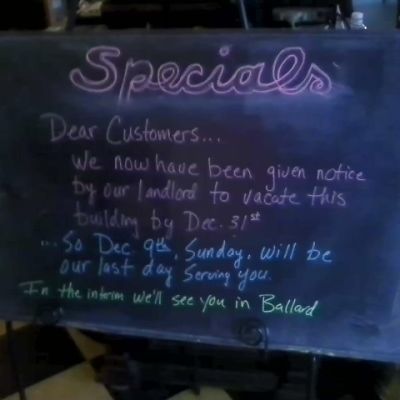 Specials
Dear Customers...
We now have been given notice
by our landlord to vacate this
building by Dec. 31st
...So Dec 9th, Sunday, will be
our last day serving you.
In the interim we'll see you in Ballard